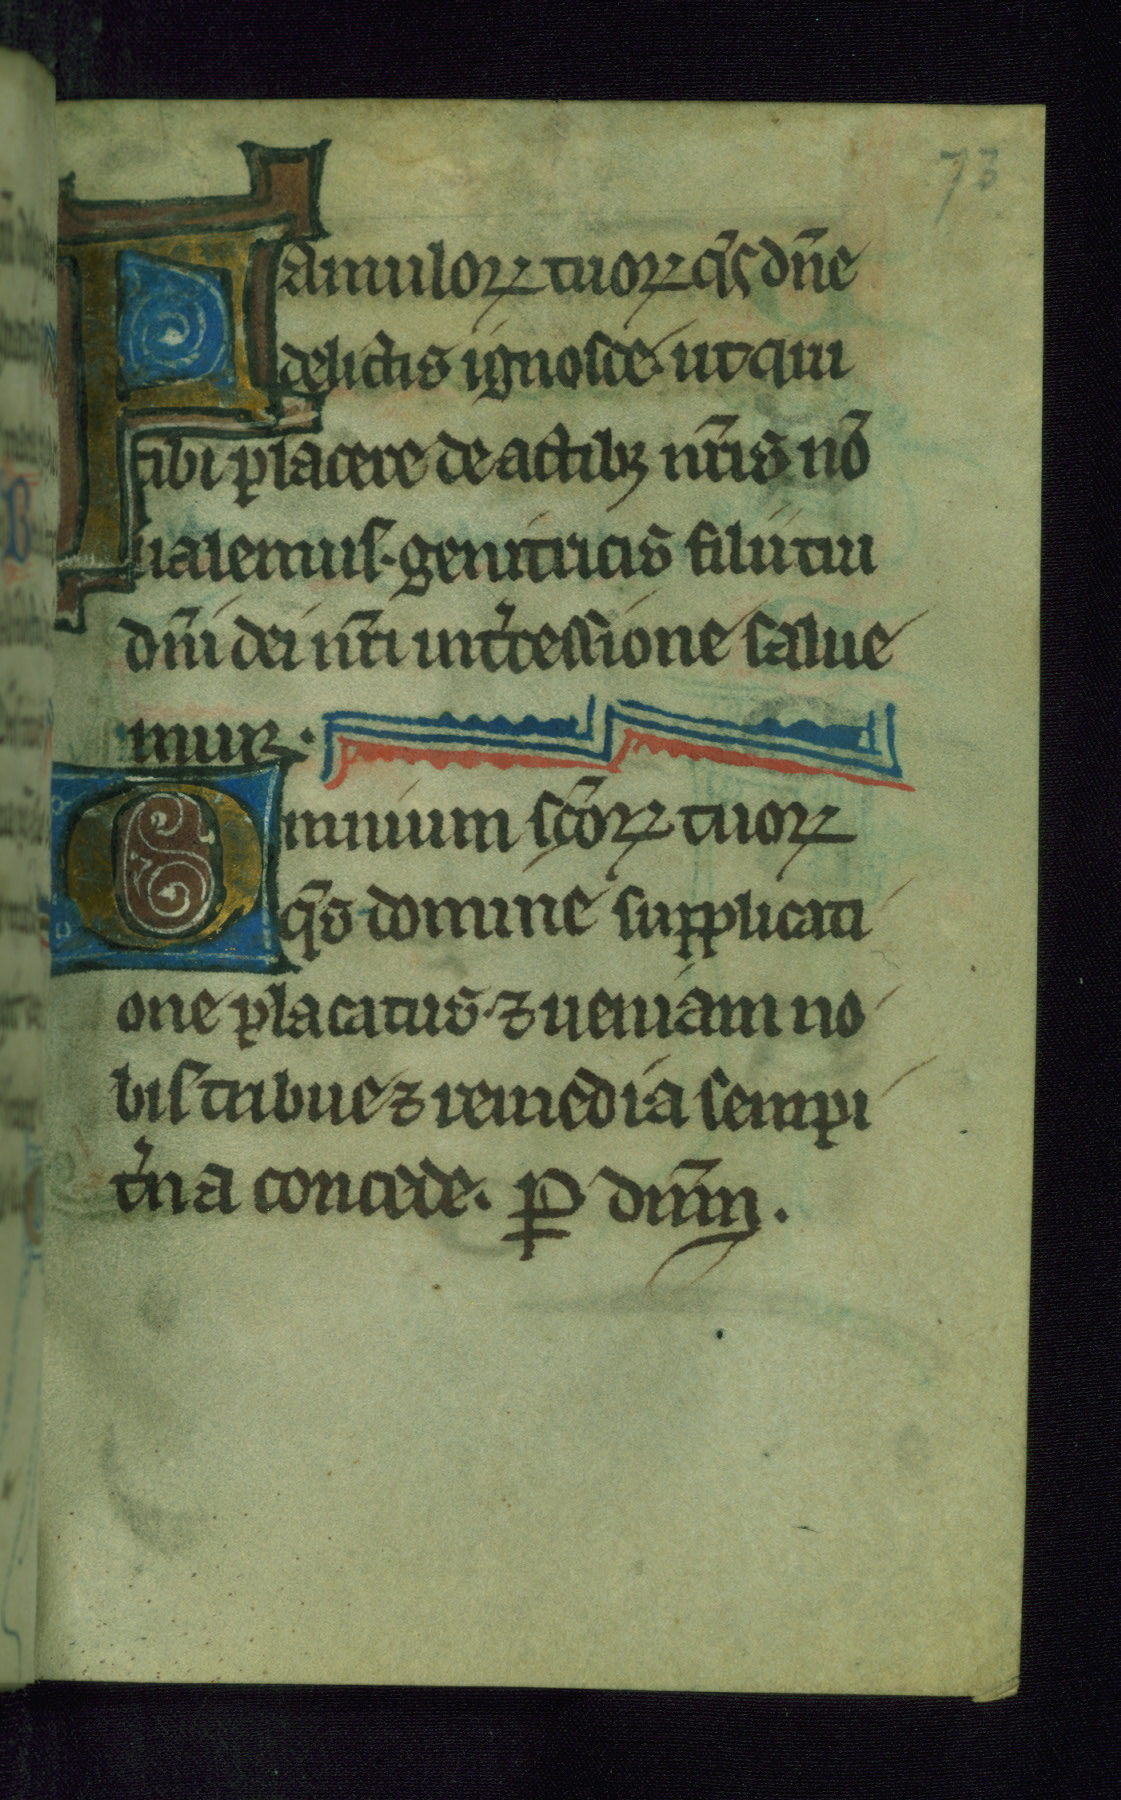 73
Famuloꝝ tuoꝝ q̄s dn̄e
delictis ignosce ut qui
tibi placere de actibꝫ nr̄is nō
ualemus. genitricis filii tui
dn̄i dei nr̄i int̉cessione salue
mur.
Omnium sc̄oꝝ tuoꝝ
q̄s domine supplicati
one placatus. ⁊ ueniam no
bis tribue ⁊ remedia sempi
t̉na concede. ꝑ dn̄m.